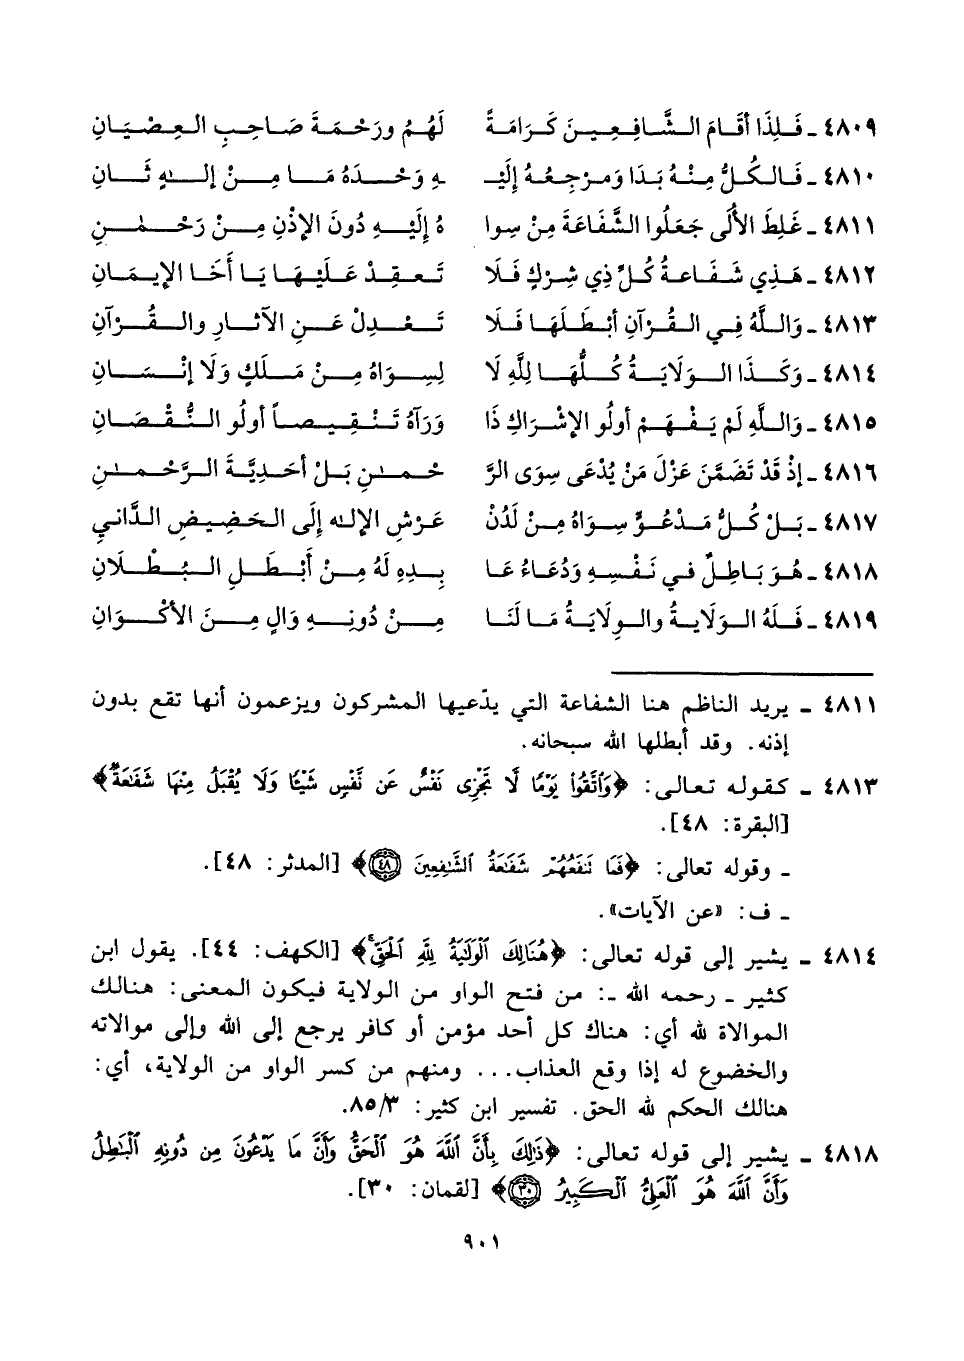 ٤٨٠٩ ـ فَلِذَا أقَامَ الشَّافِعِينَ كَرَامَةً لَهُمُ ورَحْمَةَ صَاحِبِ العِصْيَانِ
٤٨١٠ ـ فَالكُلُّ مِنْهُ بَدَا وَمَرْجِعُهُ إلَيْـ ـهِ وَحْدَهُ مَا مِنْ إلهٍ ثَانِ
٤٨١١ ـ غَلِطَ الأُلَى جَعَلُوا الشَّفَاعَةَ مِنْ سِوا هُ إلَيْهِ دُونَ الإذْنِ مِنْ رَحْمٰنِ
٤٨١٢ ـ هَذِي شَفَاعَةُ كُلِّ ذِي شِرْكٍ فَلَا تَعقِدْ عَلَيْهَا يَا أَخَا الإيمَانِ
٤٨١٣ ـ وَاللَّهُ فِي القُرْآنِ أبْطَلَهَا فَلَا تَعْدِلْ عَنِ الآثَارِ والقُرْآنِ
٤٨١٤ ـ وَكَذَا الوَلَايَةُ كُلُّهَا لِلَّهِ لَا لِسِوَاهُ مِنْ مَلَكٍ وَلَا إنْسَانِ
٤٨١٥ ـ وَاللَّهِ لَمْ يَفْهَمْ أولُو الإشْرَاكِ ذَا وَرَآهُ تَنْقِيصاً أولُو النُّقْصَانِ
٤٨١٦ ـ إذْ قَدْ تَضَمَّنَ عَزْلَ مَنْ يُدْعَى سِوَى الرَّ حْمٰنِ بَلْ أحَدِيَّةَ الرَّحْمٰنِ
٤٨١٧ ـ بَلْ كُلُّ مَدْعُوٍّ سِوَاهُ مِنْ لَدُنْ عَرْشِ الإلهِ إلَى الحَضِيضِ الدَّانِي
٤٨١٨ ـ هُوَ بَاطِلٌ في نَفْسِهِ وَدُعَاءُ عَا بِدِهِ لَهُ مِنْ أَبْطَلِ البُطْلَانِ
٤٨١٩ ـ فَلَهُ الوَلَايةُ والوِلَايَةُ مَا لَنَا مِنْ دُونِهِ وَالٍ مِنَ الأكْوَانِ
٤٨١١ ـ يريد الناظم هنا الشفاعة التي يدّعيها المشركون ويزعمون أنها تقع بدون
إذنه. وقد أبطلها الله سبحانه.
٤٨١٣ ـ كقوله تعالى: ﴿وَاتَّقُوا يَوْمًا لَّا تَجْزِي نَفْسٌ عَن نَّفْسٍ شَيْئًا وَلَا يُقْبَلُ مِنْهَا شَفَاعَةٌ﴾
[البقرة: ٤٨].
ـ وقوله تعالى: ﴿فَمَا تَنفَعُهُمْ شَفَاعَةُ الشَّافِعِينَ ٤٨﴾ [المدثر: ٤٨].
ـ ف: «عن الآيات».
٤٨١٤ ـ يشير إلى قوله تعالى: ﴿هُنَالِكَ الْوَلَايَةُ لِلَّهِ الْحَقِّ﴾ [الكهف: ٤٤]. يقول ابن
كثير ـ رحمه الله ـ: من فتح الواو من الولاية فيكون المعنى: هنالك
الموالاة لله أي: هناك كل أحد مؤمن أو كافر يرجع إلى الله وإلى موالاته
والخضوع له إذا وقع العذاب... ومنهم من كسر الواو من الولاية، أي:
هنالك الحكم لله الحق. تفسير ابن كثير: ٨٥/٣.
٤٨١٨ ـ يشير إلى قوله تعالى: ﴿ذَلِكَ بِأَنَّ اللَّهَ هُوَ الْحَقُّ وَأَنَّ مَا يَدْعُونَ مِن دُونِهِ الْبَاطِلُ
وَأَنَّ اللَّهَ هُوَ الْعَلِيُّ الْكَبِيرُ ٣٠﴾ [لقمان: ٣٠].
٩٠١